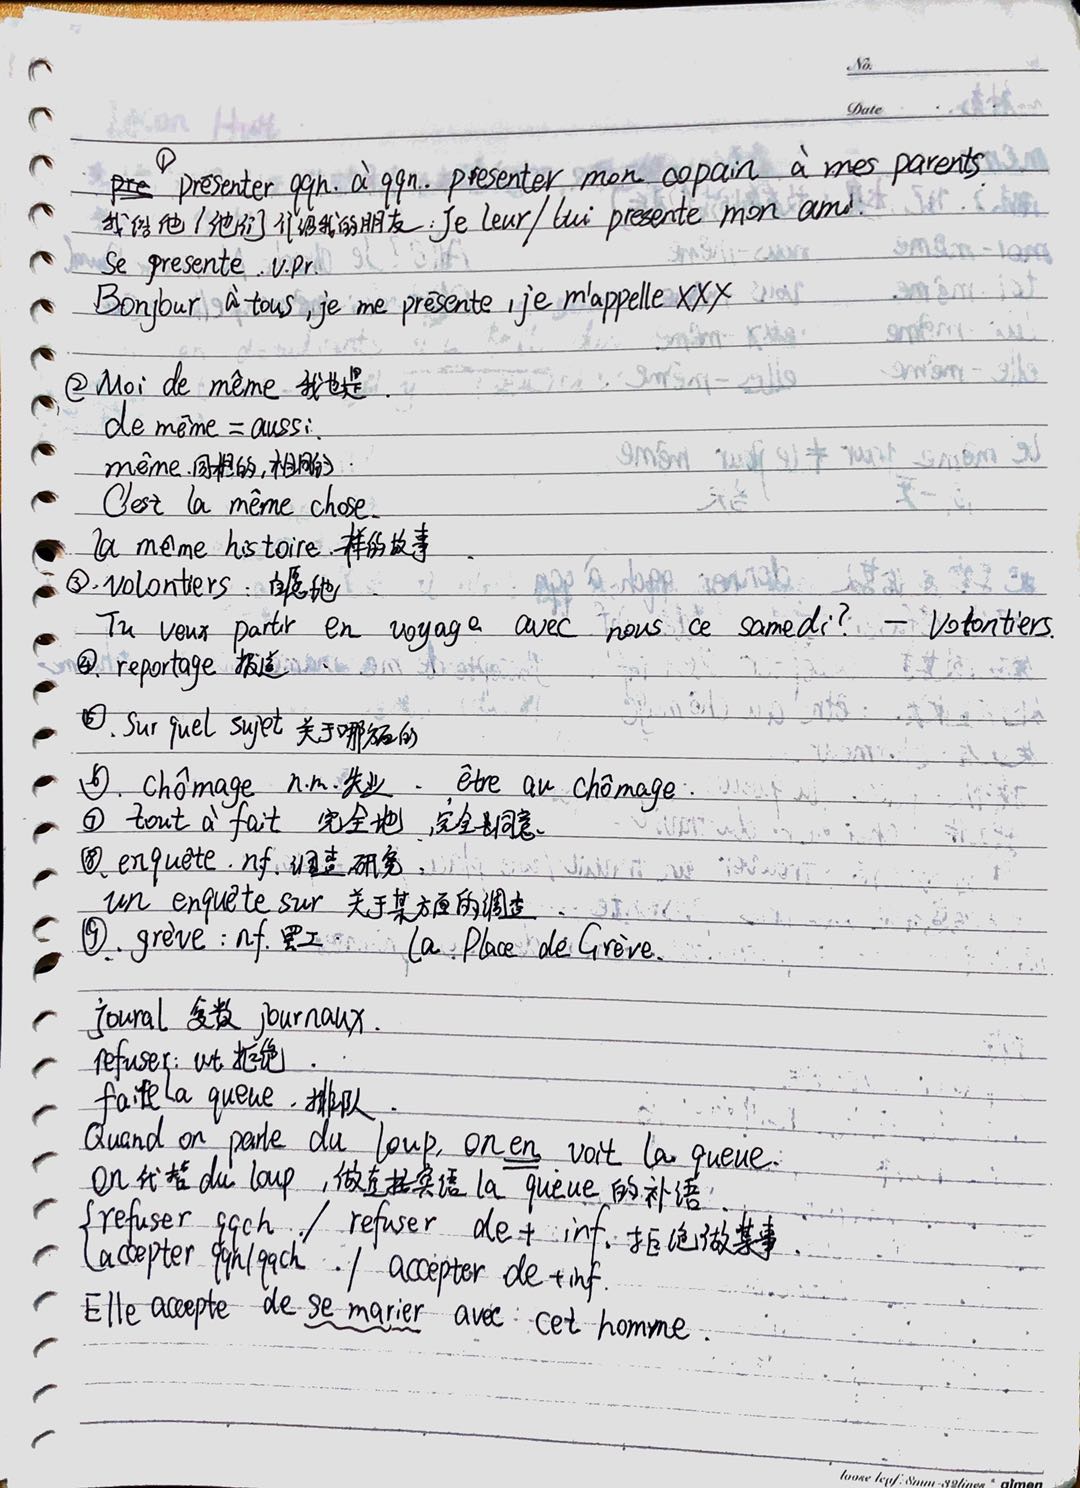 No.
Date
① présenter qqn. à qqn. présenter mon copain à mes parents.
我给他/他们介绍我的朋友: je leur/lui présente mon ami.
Se présente. v.pr.
Bonjour à tous, je me présente, je m'appelle XXX
② Moi de même 我也是.
de même = aussi.
même.同样的,相同的.
C'est la même chose.
la même histoire.一样的故事
③. volontiers: 自愿地
Tu veux partir en voyage avec nous ce samedi? — Volontiers.
④. reportage 报道
⑤. Sur quel sujet 关于哪方面的
⑥. chômage n.m.失业. être au chômage.
⑦ tout à fait 完全地,完全是同意.
⑧. enquête. nf. 调查研究.
un enquête sur 关于某方面的调查.
⑨. grève: nf. 罢工 La Place de Grève.
joural 复数 journaux.
refuser: vt 拒绝.
faire la queue. 排队.
Quand on parle du loup, on en voit la queue.
on 代替 du loup,做直接宾语 la queue 的补语.
{refuser qqch. / refuser de + inf. 拒绝做某事.
accepter qqn/qqch. / accepter de + inf.
Elle accepte de se marier avec cet homme.
loose leaf: 8mm-32lines